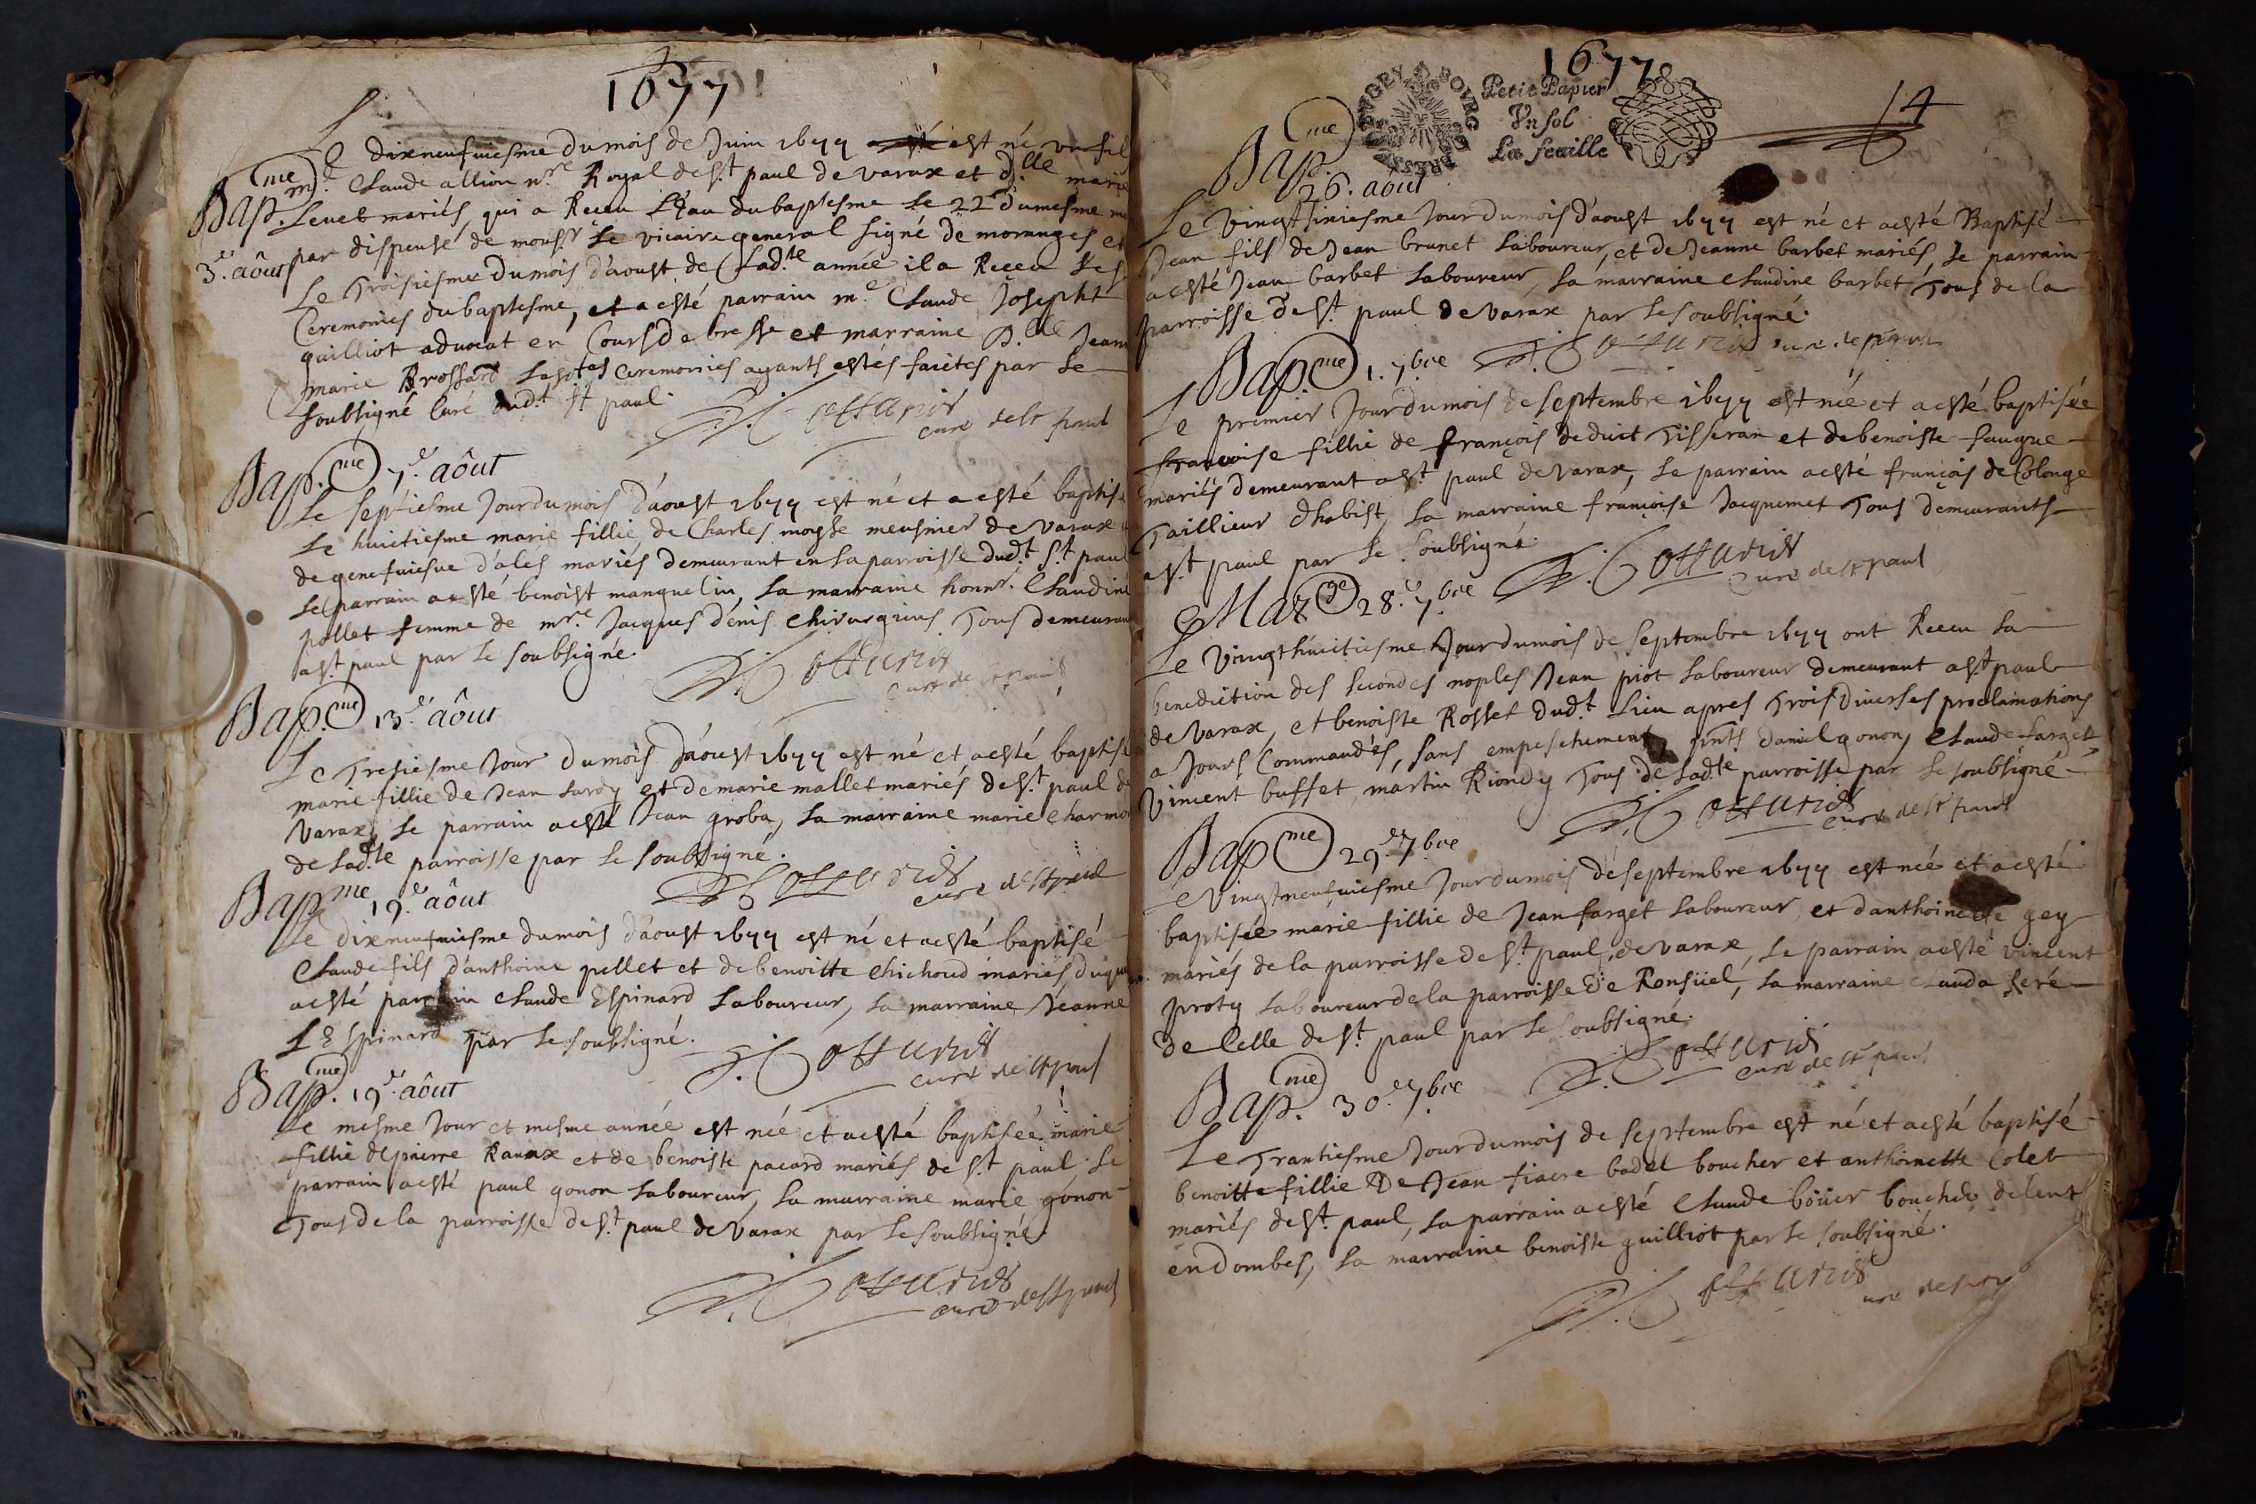 1677
Le dixneufuiesme du mois de Juin 1677 est né un fil
Bap.me m.e Claude allion n.re Royal de s.t paul de varax et d.lle marie
Leuet mariés, qui a Receu L'eau du baptesme Le 22 dumesme
3.e aôut par dispense de mons.r Le vicaire general signé de moranges et
Le Troisiesme du mois d'aoust de Lad.te année il a Receu Les
Ceremonies du baptesme, et a esté parrain m.e Claude Josepht
guilliot aduocat en Cours de bresse et marraine D.lle Jeann
marie Brossard Lesd.tes ceremonies ayants estés faictes par Le
soubsigné Curé dud.t st paul.
cure de st paul
Bap.me 7.e aôut
Le septiesme Jour du mois d'aoust 1677 est né et a esté baptis
Le huictiesme marie fillie de Charles moysse meusnier de varax
de genefuiesue d'alés mariés demeurant en La parroisse dud.t s.t paul
Le parrain a esté benoist manguelin, La marraine honn.e Claudine
pollet femme de m.re Jacques denis chirurgiens Tous demeurant
a s.t paul par Le soubsigné.
cure de st paul
Bap.me 13.e aôut
Le Tresiesme Jour du mois d'aoust 1677 est né et a esté baptisé
marie fillie de Jean Lardy et de marie mallet mariés de s.t paul de
Varax, Le parrain a esté Jean groba, La marraine marie charmo
de Lad.te parroisse par Le soubsigné.
cure de st paul
Bap.me 19.e aôut
Le dixneufuiesme du mois d'aoust 1677 est né et a esté baptisé
Claude fils d'anthoine pellet et de benoitte chichoud mariés, duquel
a esté parrain Claude Espinard Laboureur, La marraine Jeanne
L'Espinard par Le soubsigné.
cure de st paul
Bap.me 19.e aôut
Le mesme Jour et mesme année est née et a esté baptisée marie
fillie de pierre Rauax et de benoiste pacard mariés de s.t paul Le
parrain a esté paul gonon Laboureur, La marraine marie gonon
Tous de la parroisse de s.t paul de Varax par Le soubsigné.
cure de st paul
1677
BVGEY BOVRG BRESSE
Petit Papier
Vn sol
La feuille
14
Bap.me
26. aôut
Le Vingt sixiesme Jour du mois d'aoust 1677 est né et a esté Baptisé
Jean fils de Jean brunet Laboureur, et de Jeanne barbet mariés, Le parrain
a esté Jean barbet Laboureur, La marraine Claudine barbet Tous de la
parroisse de s.t paul de varax par Le soubsigné.
Bap.me 1. 7.bre
Le premier Jour du mois de septembre 1677 est née et a esté baptisée
francoise fillie de françois deduit Tisseran et de benoiste faugue
mariés demeurant a s.t paul de varax, Le parrain a esté françois de Colonge
Taillieur d'habist, La marraine françoise Jacquemet Tous demeurants
a s.t paul par Le soubsigné.
Cure de st paul
Mar.ge 28.e 7.bre
Le Vingthuictiesme Jour du mois de septembre 1677 ont Receu La
benediction des secondes noples Jean piot Laboureur demeurant a s.t paul
de Varax, et benoiste Rosset dud.t Lieu apres Trois diuerses proclamations
a Jours Commandés, sans empeschement, p.nts daniel gonon, Claude farget
Vincent buffet, martin Riondy Tous de Lad.te parroisse par Le soubsigné
cure de st paul
Bap.me 29.e 7.bre
Le Vingtneufuiesme Jour du mois de septembre 1677 est née et a esté
baptisée marie fillie de Jean farget Laboureur, et d'anthoinette gey
mariés de la parroisse de s.t paul de varax, Le parrain a esté vincent
proty Laboureur de la parroisse de Ronsüel, La marraine Clauda seré
de Celle de s.t paul par Le soubsigné.
cure de st paul
Bap.me 30.e 7.bre
Le Trantiesme Jour du mois de septembre est né et a esté baptisé
benoitte fillie De Jean fiacre badel boucher et anthoinette Colet
mariés de s.t paul, La parrain a esté Claude boüer boucher delent
en dombes, La marraine benoiste guilliot par Le soubsigné.